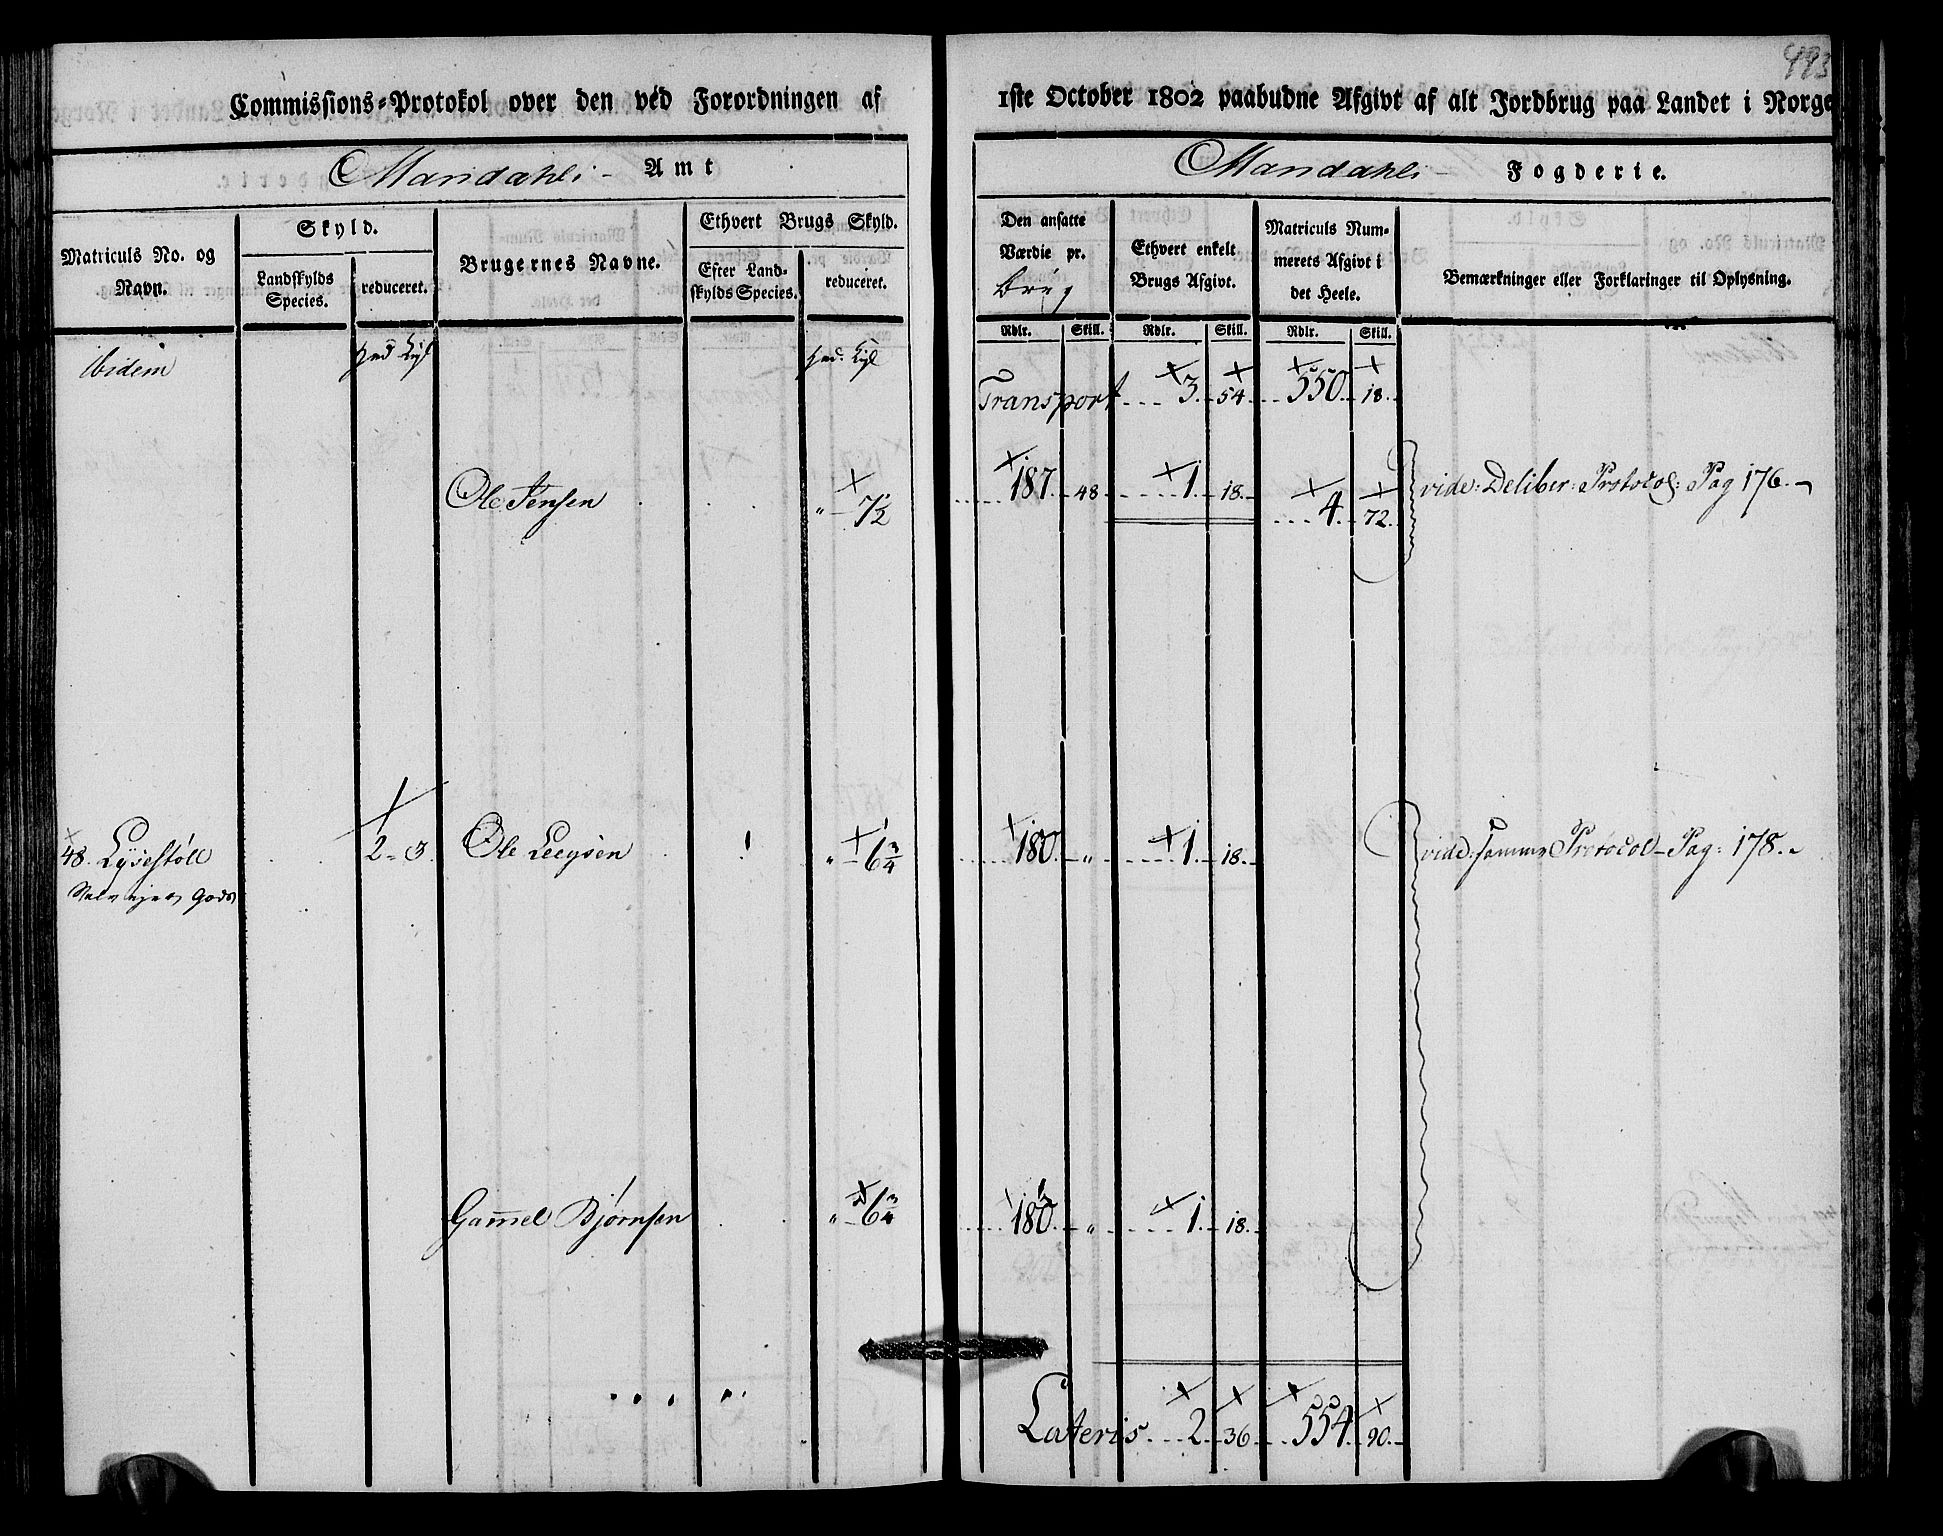 493
Commissions-Protokol over den ved Forordningen af 1ste October 1802 paabudne Afgivt af alt Jordbrug paa Landet i Norge
Mandahls Amt
Mandahls Fogderie.
Matriculs No. og Navn.
Skyld.
Landskylds Species.
reduceret.
Brugernes Navne.
Ethvert Brugs Skyld.
Efter Landskylds Species.
reduceret.
Den ansatte Værdie pr. brug
Ethvert enkelt Brugs Afgivt.
Matriculs Nummerets Afgivt i det Heele.
Bemærkninger eller Forklaringer til Oplysning.
Rdlr. Skill. Rdlr. Skill. Rdlr. Skill.
Ibidem
Transport 3. 54 550. 18.
Ole Jensen " 7½ 187. 48 1. 18. 4. 72. vide: Deliber: Protocol: Pag 176.
48. Lysestøll 2 - 3 Ole Leegsen " 6¾ 180. " 1. 18. vide: samme Protocol - Pag: 178.
Selv ejer gods
Gam̅el Bjørnsen " 6¾ 180. " 1. 18.
Lateris 2. 36 554. 90.